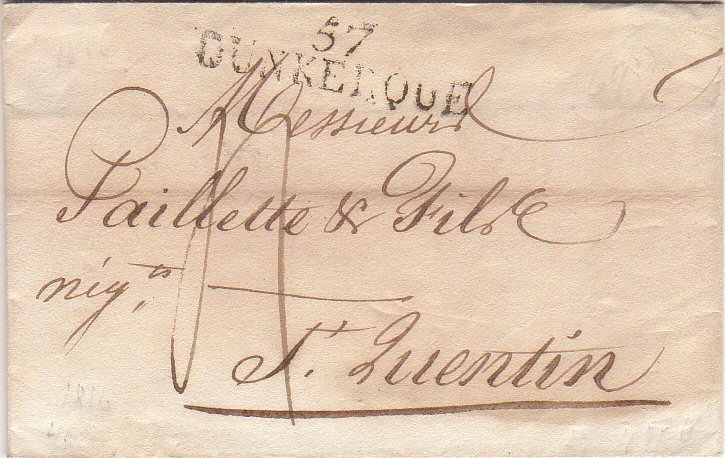 57
DUNKERQUE
Messieurs
Paillette & Fils
nég.ts
St. Quentin